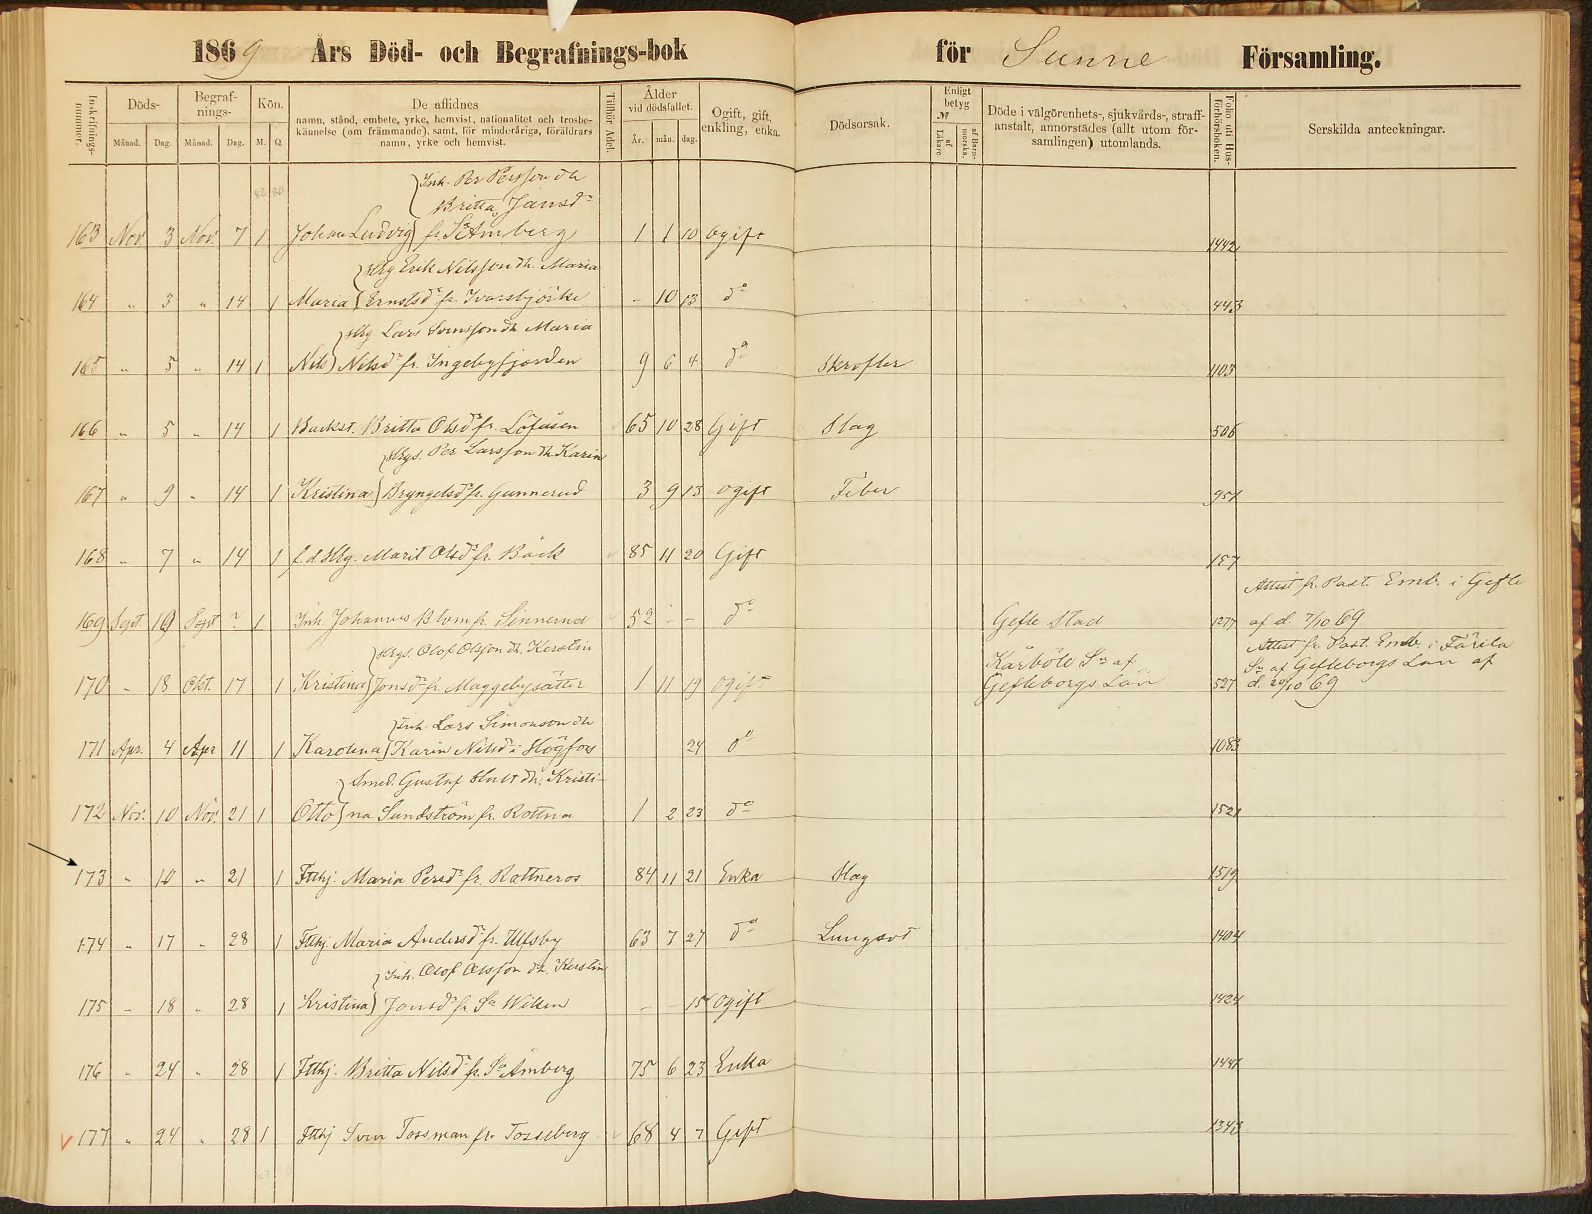 1869 Års Död- och Begrafnings-bok för Sunne Församling.
Inskrifnings-nummer. Döds- Månad. Dag. Begraf-nings- Månad. Dag. Kön. M. Q.
De aflidnes
namn, stånd, embete, yrke, hemvist, nationalitet och trosbe-
kännelse (om främmande), samt, för minderåriga, föräldrars
namn, yrke och hemvist.
Tillhör Adel. Ålder vid dödsfallet. År. mån. dag. Ogift, gift, enkling, enka.
Dödsorsak. Enligt betyg № af Läkare. af Barn-morska.
Döde i välgörenhets-, sjukvårds-, straff-
anstalt, annorstädes (allt utom för-
samlingen) utomlands.
Folio uti Hus-förhörsboken. Serskilda anteckningar.
Inh. Per Persson dh
Britta Jansd:r
163 Nov. 3 Nov. 7 1 Johan Ludvig fr. S:a Åmberg 1 1 10 ogift 1442
Hbg Erik Nilsson dh. Maria
164 " 3 " 14 1 Maria Ernstsd:r fr. Ivarsbjörke - 10 13 d:o 443
Hbg Lars Svensson dh Maria
165 " 5 " 14 1 Nils Nilsd:r fr. Ingebyfjorden 9 6 4 d:o Skrofler 1103
166 " 5 " 14 1 Backst. Britta Olsd:r fr. Löfåsen 65 10 28 Gift Slag 506
Hbgs. Per Larsson dh Karin
167 " 9 " 14 1 Kristina Bryngelsd:r fr. Gunnerud 3 9 13 ogift Feber 951
168 " 7 " 14 1 f.d. Hbg. Marit Olsd:r fr. Bäck 85 11 20 Gift 157
Attest fr. Past. Emb. i Gefle
169 Sept 19 Sept ? 1 Inh Johannes Blom fr. Sinnerud 52 - - d:o Gefle Stad 1277 af d. 7/10 69
Hbgs. Olof Olsson dh. Kerstin Kårböle S:n af Attest fr. Past. Emb. i Färila
170 " 18 Okt. 17 1 Kristina Jonsd:r fr. Maggebysätter 1 11 19 ogift Gefleborgs Län 527 S:n af Gefleborgs Län af
d. 20/10 69
Inh. Lars Simonson dh
171 Apr. 4 Apr 11 1 Karolina Karin Nilsd i Högfors 24 d:o 1083
Smed. Gustaf Hult dh. Kristi-
172 Nov. 10 Nov. 21 1 Otto na Sundström fr. Rottna 1 2 23 d:o 1521
173 " 10 " 21 1 Ftthj Maria Persd:r fr. Rottneros 84 11 21 Enka Slag 1519
174 " 17 " 28 1 Ftthj. Maria Andersd:r fr. Ulfsby 63 7 27 d:o Lungsot 1404
Inh. Olof Olsson dh. Kerstin
175 " 18 " 28 1 Kristina Jonsd:r fr S:a Wiken - - 15 ogift 1424
176 " 24 " 28 1 Ftthj. Britta Nilsd:r fr. S:a Åmberg 75 6 23 Enka 1441
177 " 24 " 28 1 Ftthj Sven Tossman fr. Tosseberg 68 4 7 Gift 1343